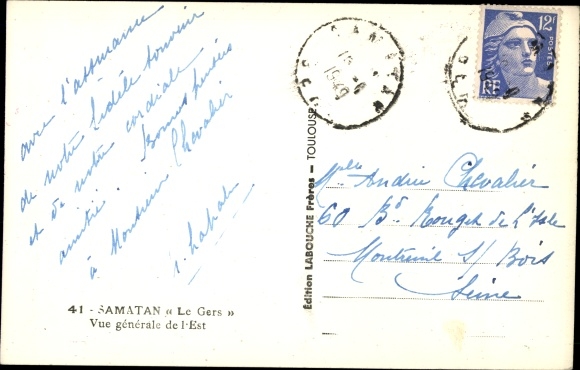 avec l'assurance
de notre fidèle souvenir
et de notre cordiale
amitié. Bonnes pensées
à Monsieur Chevalier
41 - SAMATAN « Le Gers »
Vue générale de l'Est
Édition LABOUCHE Frères — TOULOUSE
SAMATAN
GERS
12F
POSTES
RF
Mme Andrée Chevalier
60 Bd Rouget de l'Isle
Montreuil s/ Bois
Seine